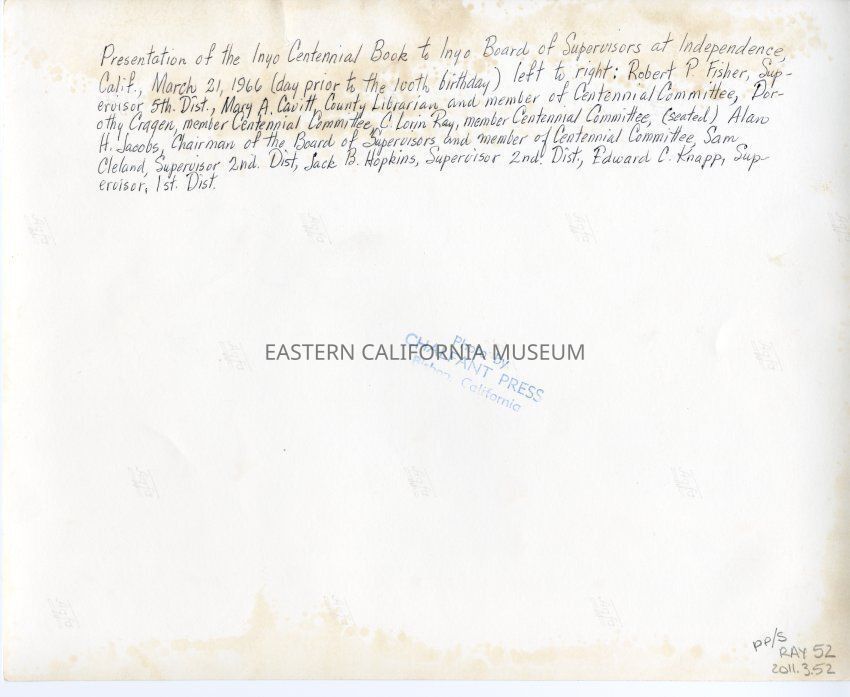 Presentation of the Inyo Centennial Book to Inyo Board of Supervisors at Independence,
Calif., March 21, 1966 (day prior to the 100th birthday) left to right: Robert P. Fisher, Sup-
ervisor 5th. Dist., Mary A. Cavitt, County Librarian and member of Centennial Committee, Dor-
othy Cragen, member Centennial Committee, C. Lorin Ray, member Centennial Committee, (seated) Alan
H. Jacobs, Chairman of the Board of Supervisors and member of Centennial Committee, Sam
Cleland, Supervisor 2nd. Dist, Jack B. Hopkins, Supervisor 2nd. Dist., Edward C. Knapp, Sup-
ervisor, 1st. Dist.
EASTERN CALIFORNIA MUSEUM
Photo by
CHALFANT PRESS
Bishop, California
pp/s
RAY 52
2011.3.52